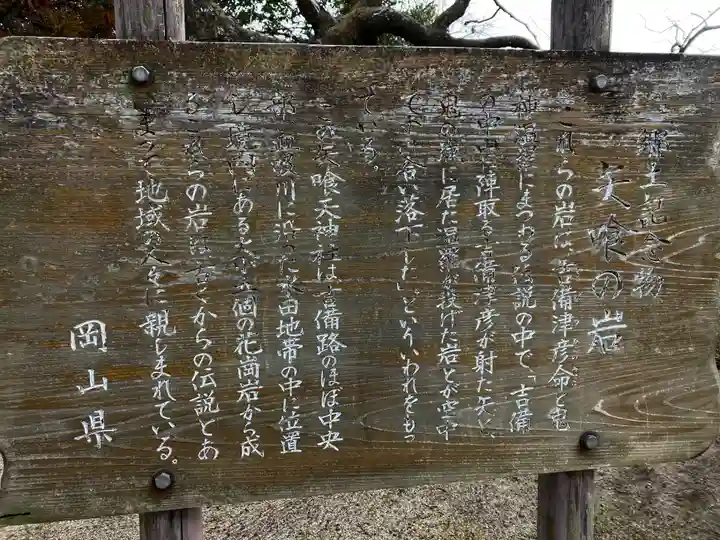 郷土記念物
矢喰の岩
これらの岩は、吉備津彦命と鬼
神温羅にまつわる伝説の中で「吉備
の中山に陣取る吉備津彦が射た矢と、
鬼の城に居た温羅が投げた岩とが空中
で 食い落下した」といういわれをもっ
ている。
矢喰天神社は吉備路のほぼ中央
部 血吸川に沿った水田地帯の中に位置
し 境内にある 個の花崗岩から成
るこれらの岩は からの伝説とあ
いまって地域の人々に親しまれている。
岡山県